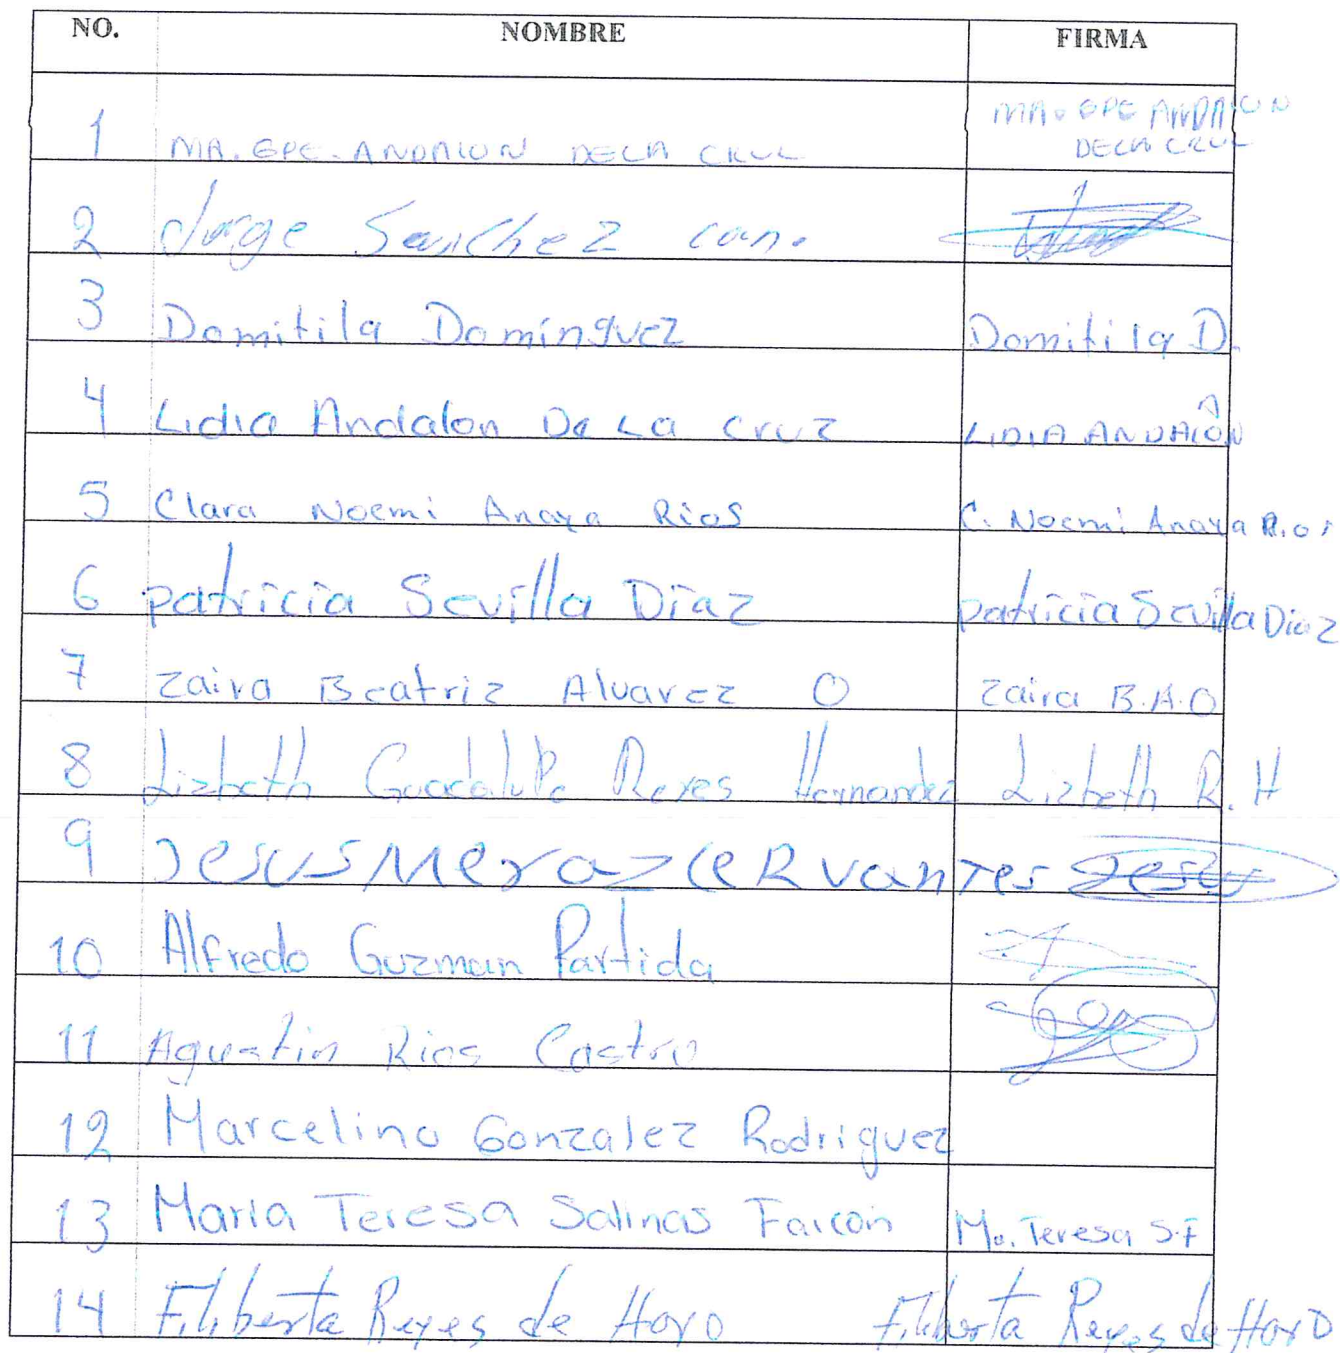 NO. NOMBRE FIRMA
1 MA. GPE. ANDALON DE LA CRUZ MA. GPE ANDALON
DE LA CRUZ
2 Jorge Sanchez can.
3 Domitila Domínguez Domitila D.
4 Lidia Andalon De La cruz LIDIA ANDALÓN
5 Clara Noemi Anaya Rios C. Noemi Anaya Rios
6 patricia Sevilla Díaz patricia Sevilla Diaz
7 Zaira Beatriz Alvarez O Zaira B.A.O
8 Lizbeth Guadalupe Reyes Hernandez Lizbeth R. H
9 Jesus Meraz Cervantes Jesus
10 Alfredo Guzman Partida
11 Agustin Rios Castro
12 Marcelino Gonzalez Rodriguez
13 Maria Teresa Salinas Falcon Ma. Teresa S.F
14 Filiberta Reyes de Haro Filiberta Reyes de Haro